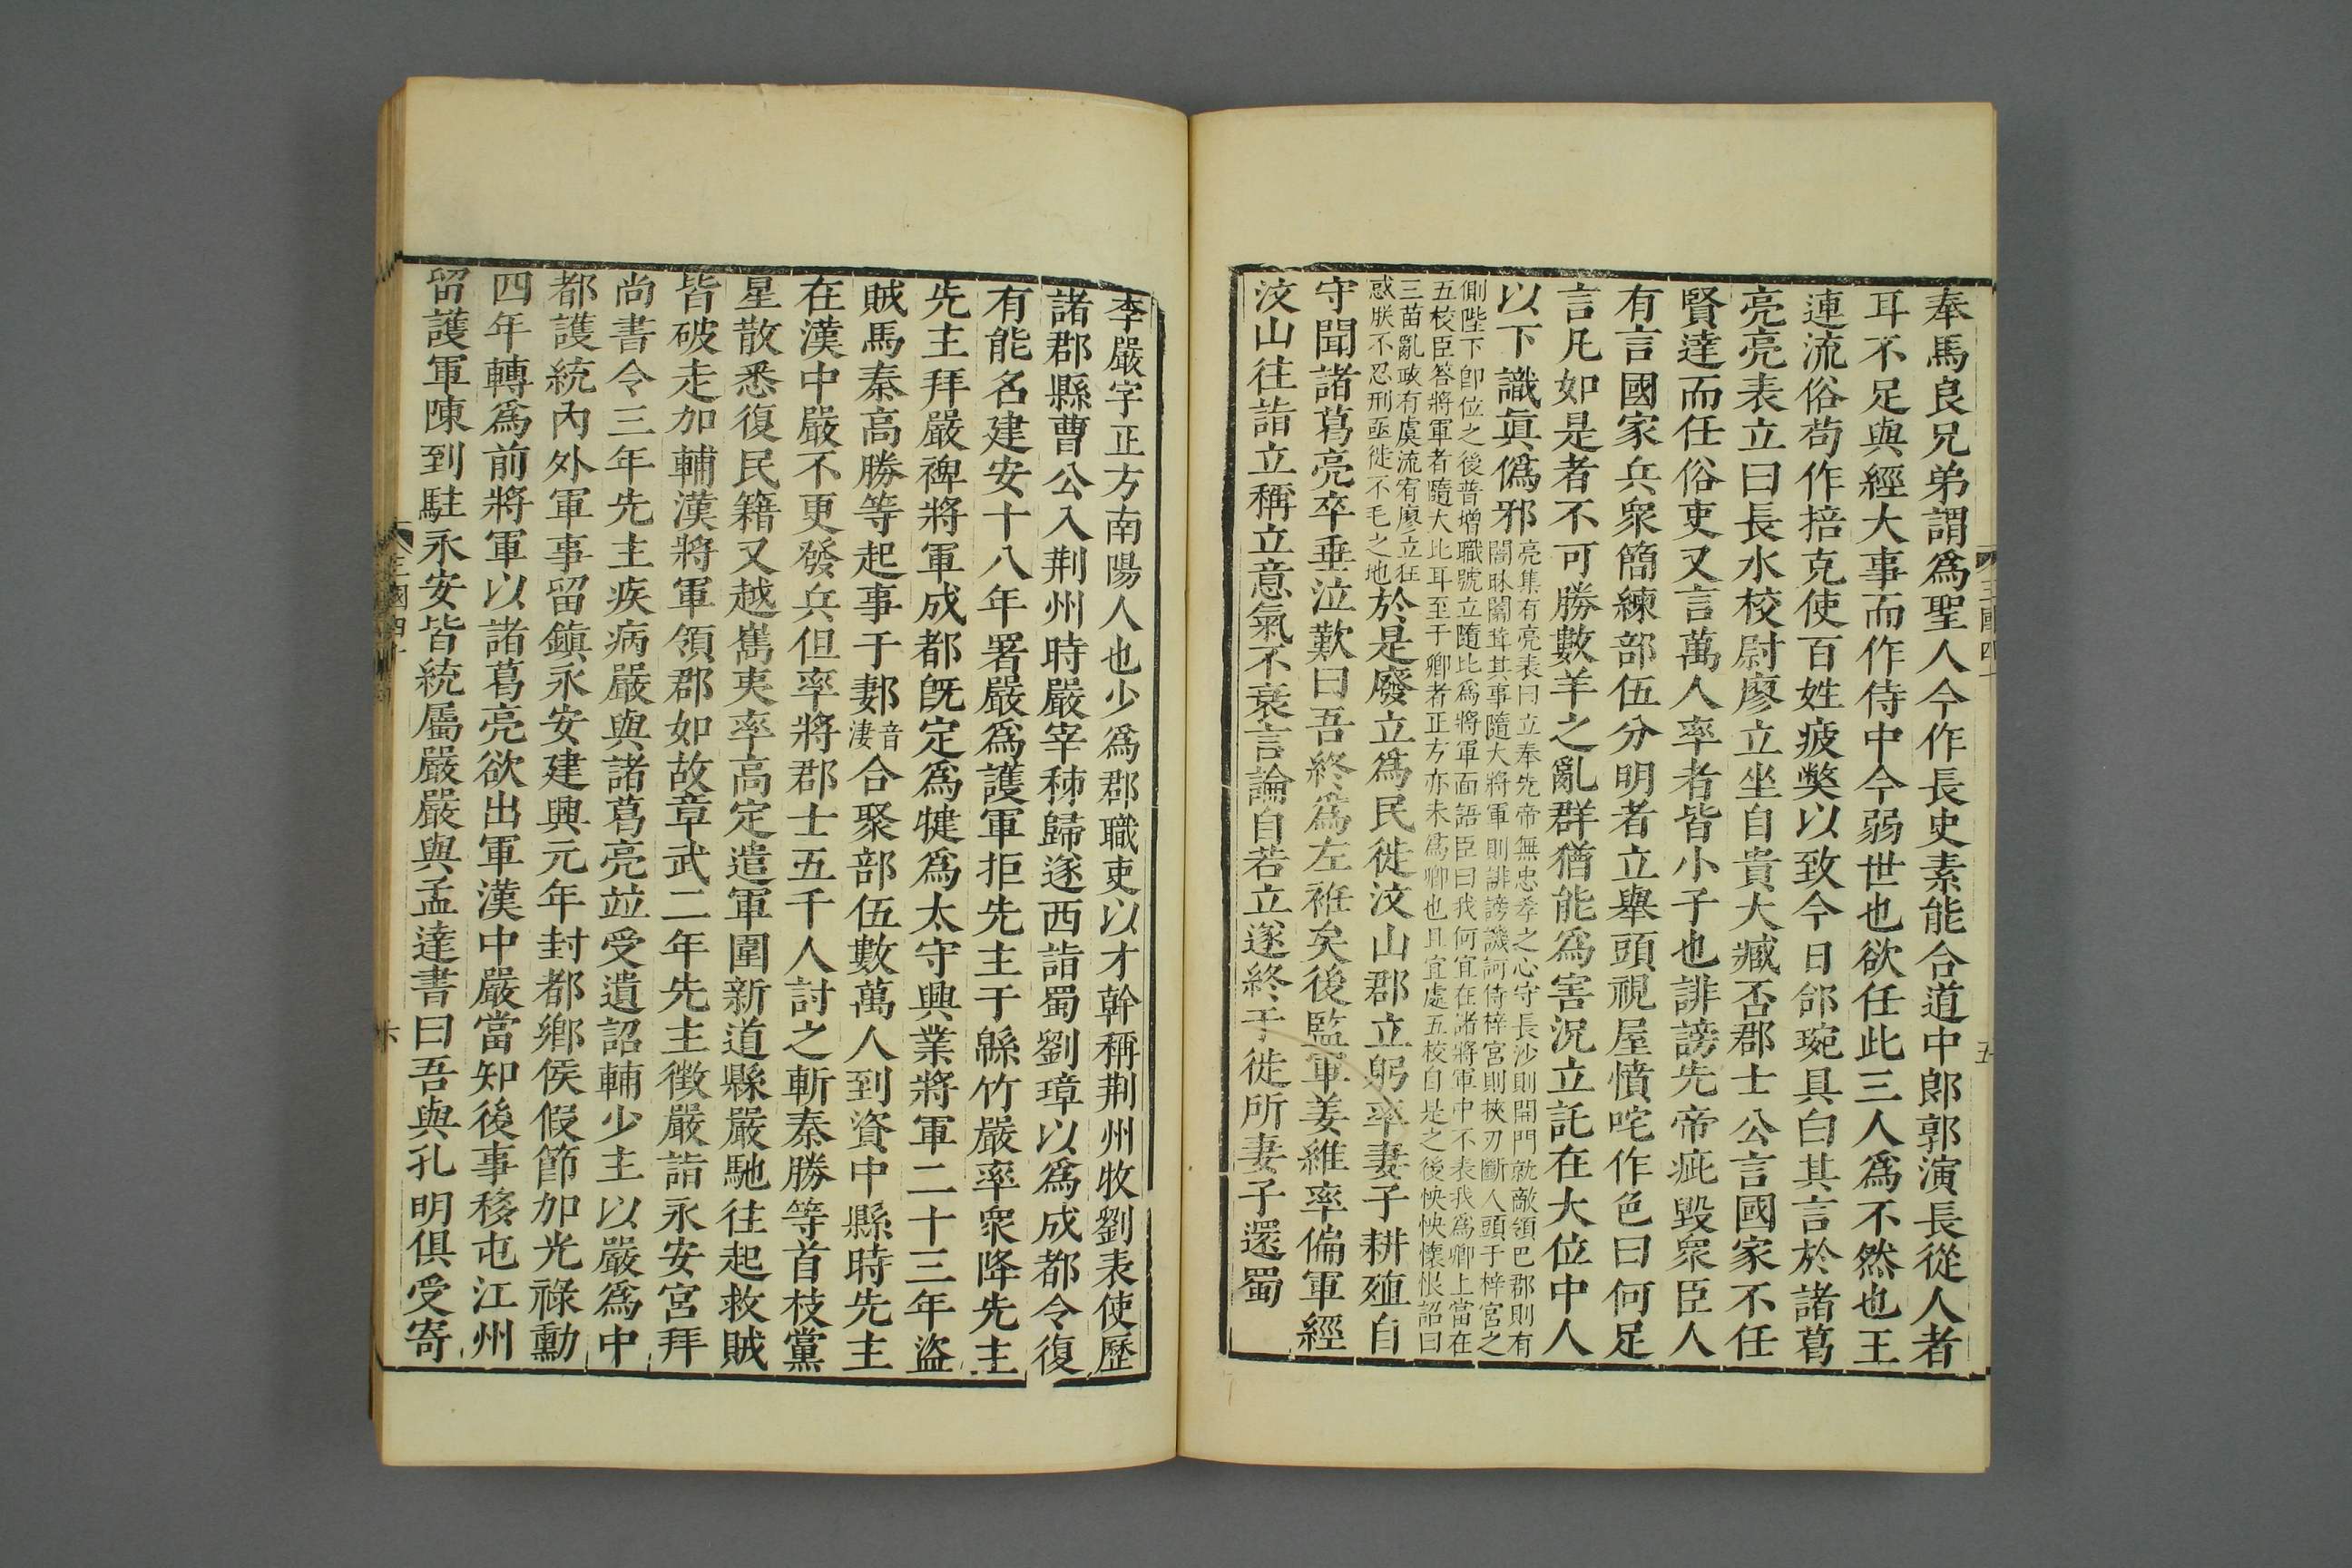 奉馬良兄弟謂爲聖人今作長史素能合道中郎郭演長從人者
耳不足與經大事而作侍中今弱世也欲任此三人爲不然也王
連流俗苟作掊克使百姓疲獘以致今日郃琬具白其言於諸葛
亮亮表立曰長水校尉廖立坐自貴大臧否郡士公言國家不任
賢達而任俗吏又言萬人率者皆小子也誹謗先帝疵毀衆臣人
有言國家兵衆簡練部伍分明者立舉頭視屋憤咤作色曰何足
言凡如是者不可勝數羊之亂群猶能爲害況立託在大位中人
以下識眞僞邪
亮集有亮表曰立奉先帝無忠孝之心守長沙則開門就敵領巴郡則有
闇昧闒茸其事隨大將軍則誹謗譏訶侍梓宮則挾刃斷人頭于梓宮之
側陛下卽位之後普增職號立隨比爲將軍面語臣曰我何宜在諸將軍中不表我爲卿上當在
五校臣答將軍者隨大比耳至于卿者正方亦未爲卿也且宜處五校自是之後怏怏懷恨詔曰
三苗亂政有虞流宥廖立狂
惑朕不忍刑亟徙不毛之地
於是廢立爲民徙汶山郡立躬率妻子耕殖自
守聞諸葛亮卒垂泣歎曰吾終爲左袵矣後監軍姜維率偏軍經
汶山往詣立稱立意氣不衰言論自若立遂終于徙所妻子還蜀
三國四十
五
李嚴字正方南陽人也少爲郡職吏以才幹稱荆州牧劉表使歷
諸郡縣曹公入荆州時嚴宰秭歸遂西詣蜀劉璋以爲成都令復
有能名建安十八年署嚴爲護軍拒先主于緜竹嚴率衆降先主
先主拜嚴裨將軍成都旣定爲犍爲太守興業將軍二十三年盜
賊馬秦高勝等起事于郪音淒合聚部伍數萬人到資中縣時先主
在漢中嚴不更發兵但率將郡士五千人討之斬秦勝等首枝黨
星散悉復民籍又越嶲夷率高定遣軍圍新道縣嚴馳往起救賊
皆破走加輔漢將軍領郡如故章武二年先主徵嚴詣永安宮拜
尚書令三年先主疾病嚴與諸葛亮竝受遺詔輔少主以嚴爲中
都護統內外軍事留鎭永安建興元年封都鄉侯假節加光祿勳
四年轉爲前將軍以諸葛亮欲出軍漢中嚴當知後事移屯江州
留護軍陳到駐永安皆統屬嚴嚴與孟達書曰吾與孔明俱受寄
三國四十
六